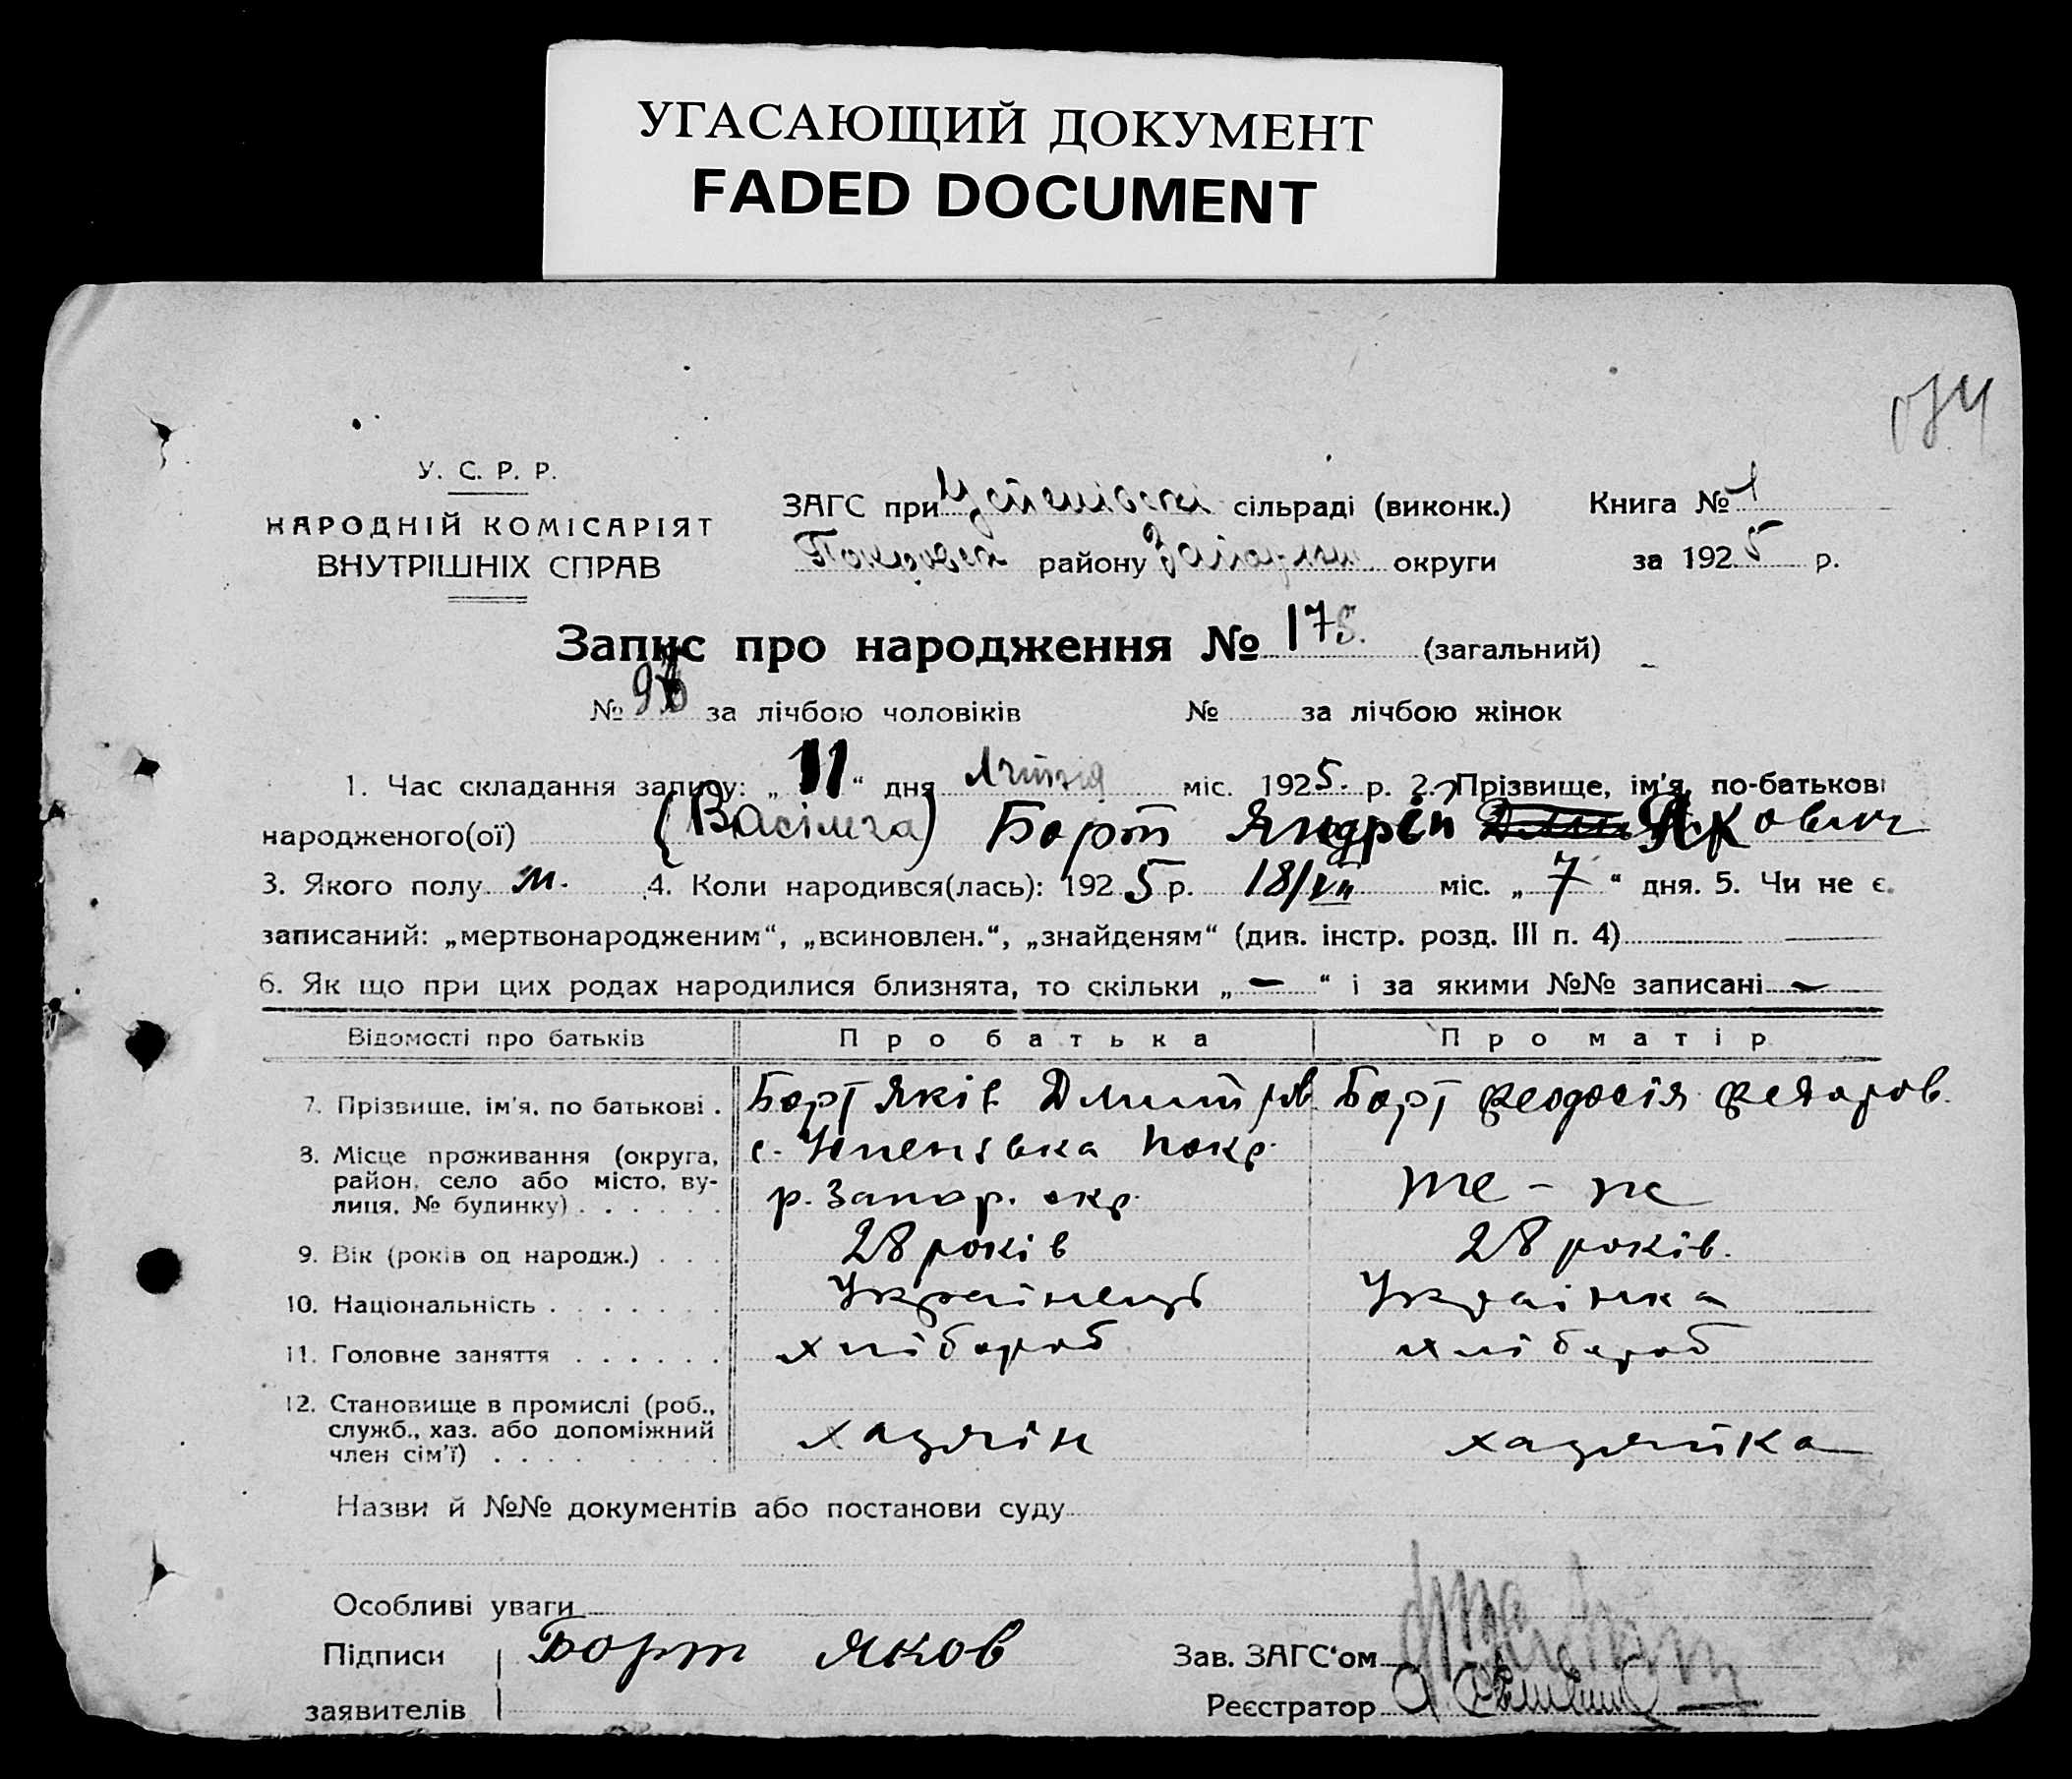 УГАСАЮЩИЙ ДОКУМЕНТ
FADED DOCUMENT
У. С. Р. Р.
НАРОДНІЙ КОМІСАРІЯТ
ВНУТРІШНІХ СПРАВ
ЗАГС при сільраді (виконк.)
району округи
Книга № 1
за 1925 р.
Запис про народження № 175. (загальний)
№ за лічбою чоловіків № за лічбою жінок
1. Час складання запису: „11“ дня міс. 1925. р. 2. Прізвище, ім'я, по-батькові
народженого(ої) Борт Яндрій Якович
3. Якого полу м. 4. Коли народився(лась): 1925 р. 18/VII міс. „7“ дня. 5. Чи не є.
записаний: „мертвонародженим“, „всиновлен.“, „знайденям“ (див. інстр. розд. III п. 4)
6. Як що при цих родах народилися близнята, то скільки „—“ і за якими №№ записані —
Відомості про батьків Про батька Про матір
7. Прізвище, ім'я, по батькові . Борт Яків Дмитров. Борт Феодосія Федоров.
8. Місце проживання (округа, район, село або місто, вулиця, № будинку) с. Успенівка Покр. р. Запор. окр. те - ж
9. Вік (років од народж.) . . . 28 років 28 років.
10. Національність . . . . . . . Українець Українка
11. Головне заняття . . . . . . хлібороб хлібороб
12. Становище в промислі (роб., служб., хаз. або допоміжний член сім'ї) . . . . хазяїн хазяйка
Назви й №№ документів або постанови суду
Особливі уваги
Підписи заявителів Борт Яков
Зав. ЗАГС'ом
Реєстратор